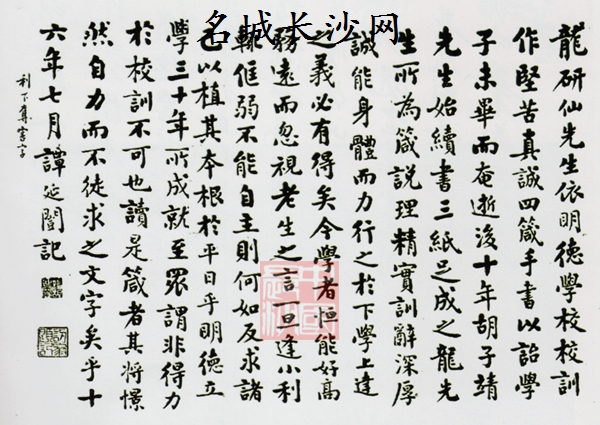 名城长沙网
龍研仙先生依明德學校校訓
作堅苦真誠四箴手書以詒學
子未畢而奄逝後十年胡子靖
先生始續書三紙足成之龍先
生所為箴說理精實訓辭深厚
誠能身體而力行之於下學上達
之義必有得矣今學者恒能好高
騖遠而忽視老生之言一旦逢小利
輒恇弱不能自主則何如反求諸
己以植其本根於平日乎明德立
學三十年所成就至眾謂非得力
於校訓不可也讀是箴者其將憬
然自力而不徒求之文字矣乎十
六年七月譚延闓記
利下奪害字